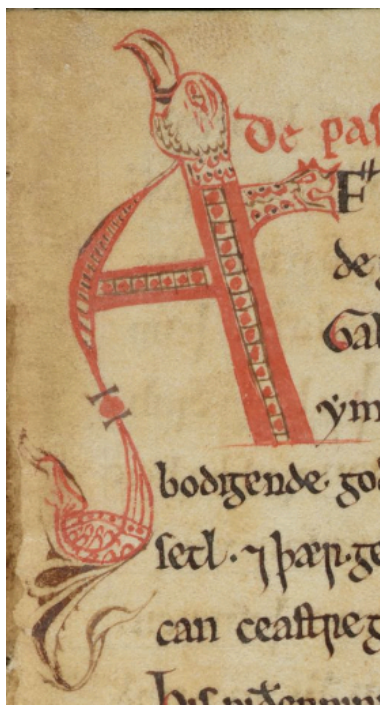 A de pas
E
de
Gal
ym
bodigende· go
setl·⁊ þær·ge
can ceastre g